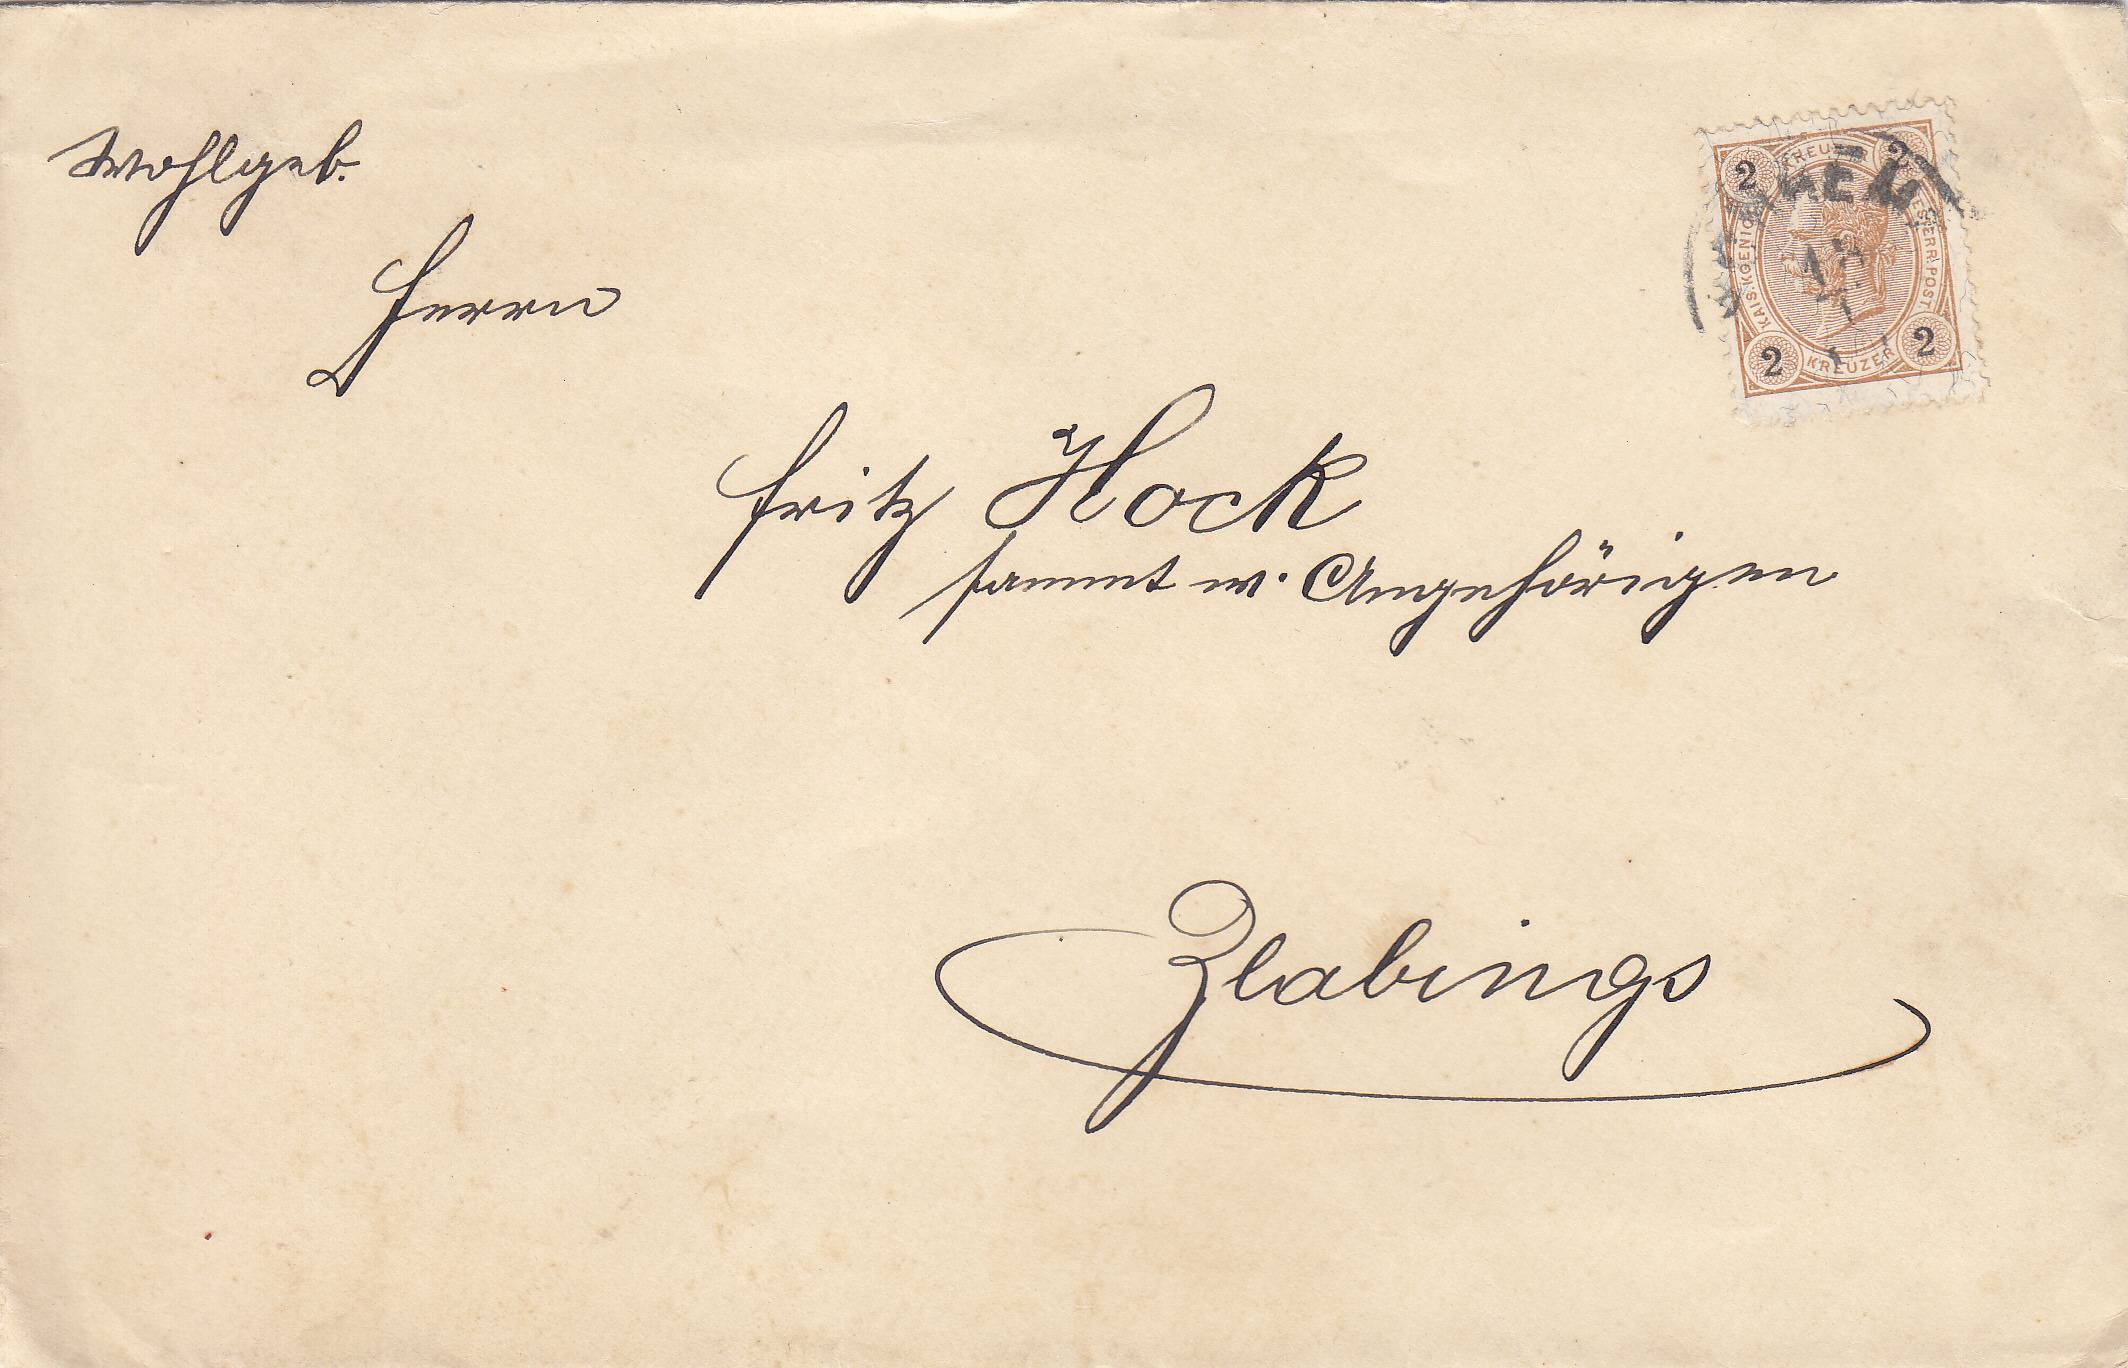 Wohlgeb.
Herrn
Fritz Hock
sammt w. Angehörigen
Zlabings
KREUZER
2 2
KAIS. KOENIGL. OESTERR. POST
2 2
KREUZER